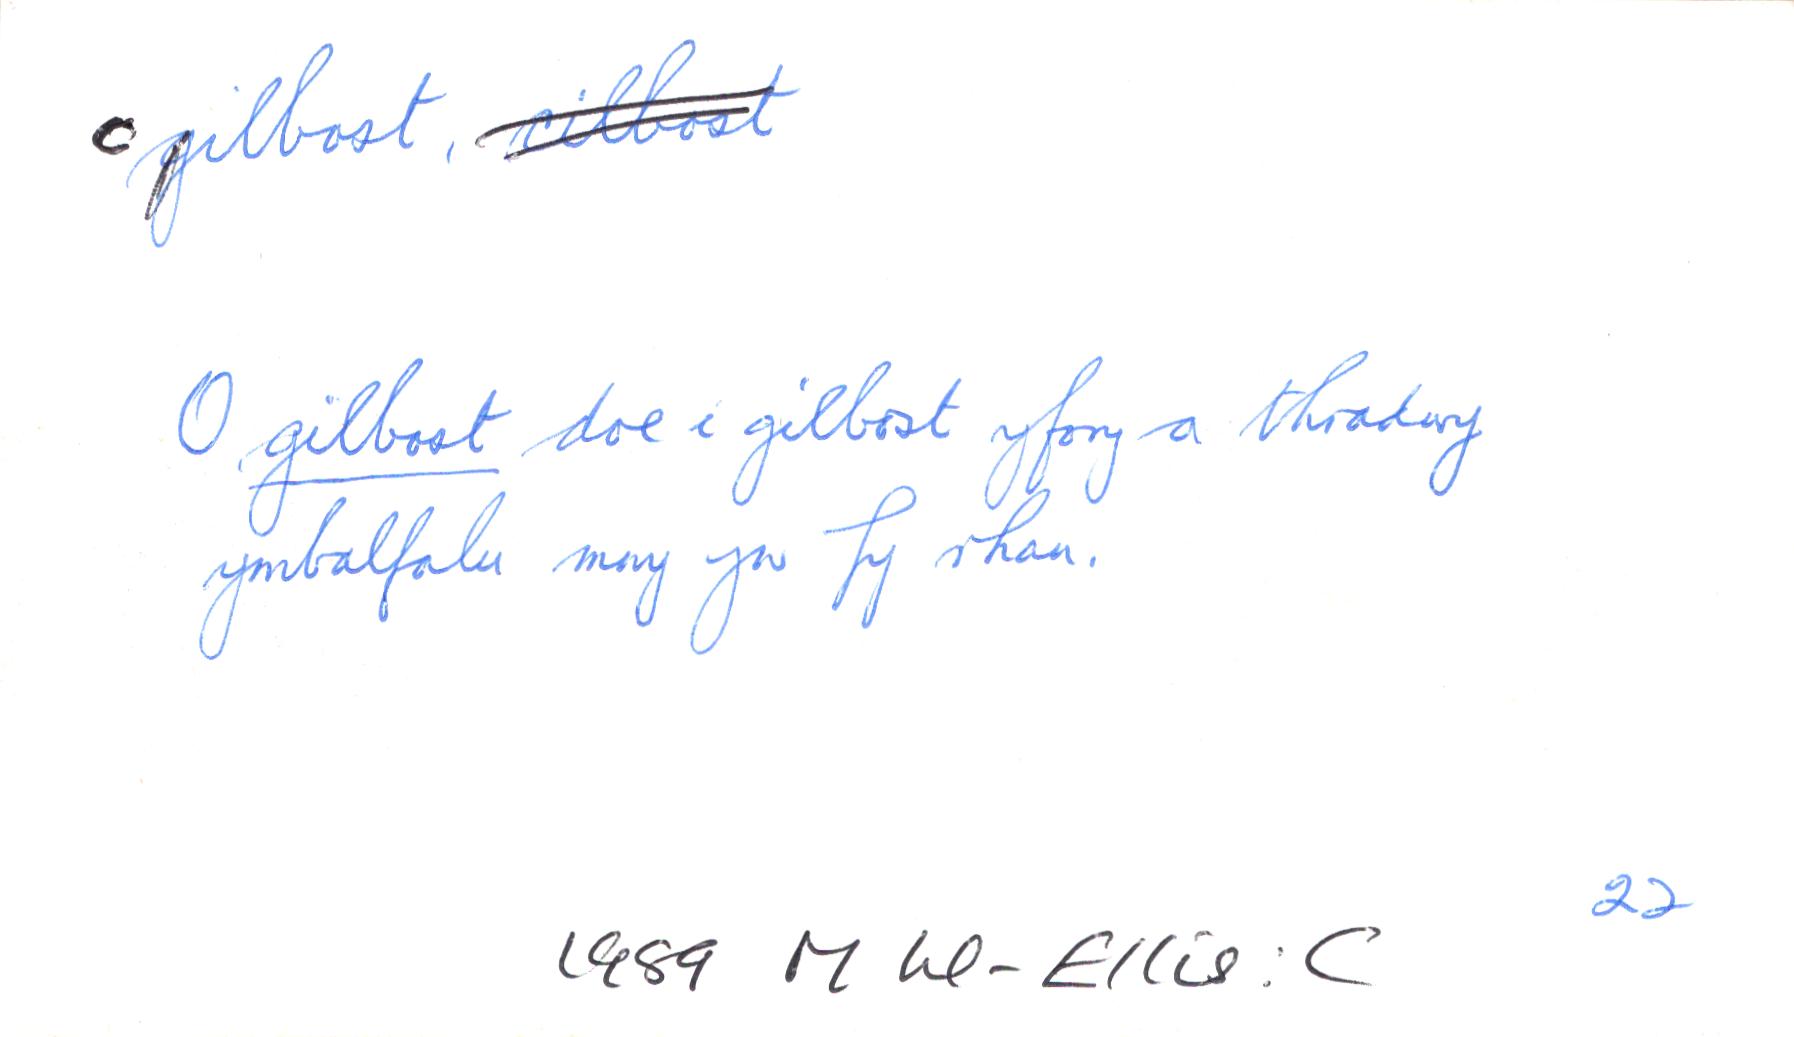 cgilbost, cilbost
O gilbost doe i gilbost yfory a thradwy
ymbalfalu mwy yw fy rhan.
22
1989 M Ll-Ellis: C